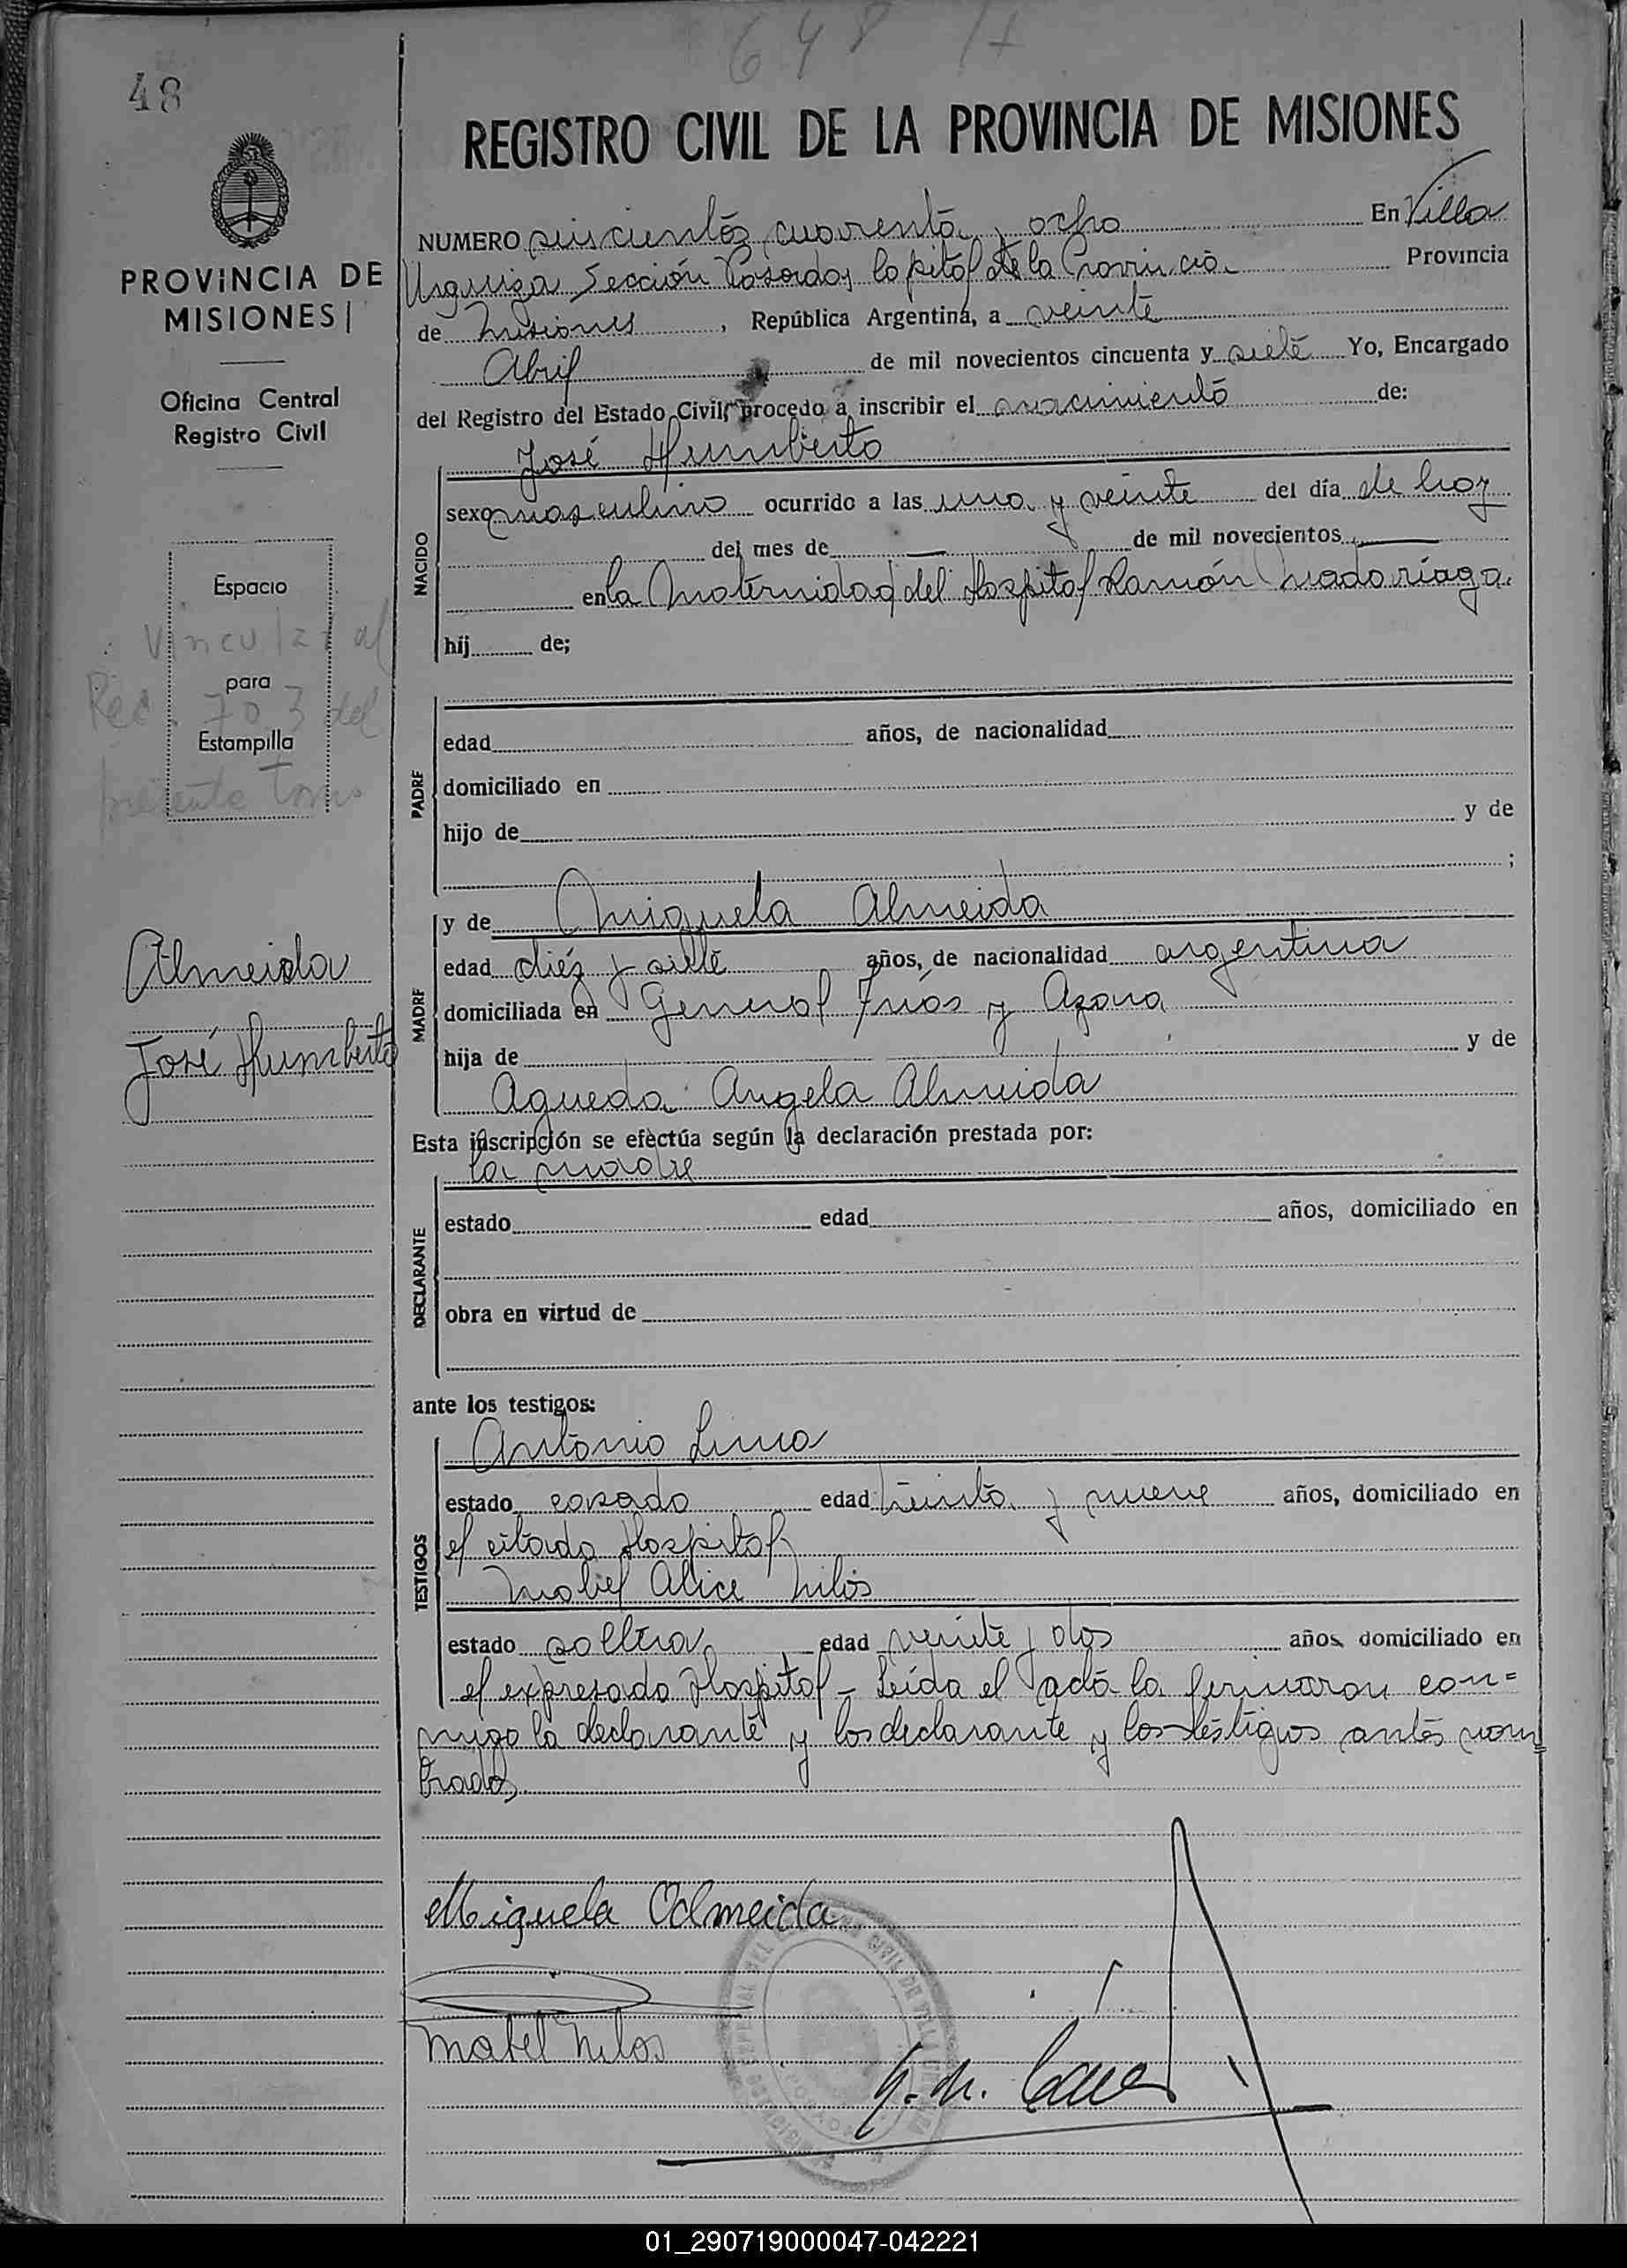 648 H
48
REGISTRO CIVIL DE LA PROVINCIA DE MISIONES
PROVINCIA DE
MISIONES
Oficina Central
Registro Civil
NUMERO seiscientos cuarenta y ocho En Villa
Urquiza Sección Posadas Capital de la Provincia Provincia
de Misiones, República Argentina, a veinte
Abril de mil novecientos cincuenta y siete Yo, Encargado
del Registro del Estado Civil, procedo a inscribir el nacimiento de:
José Humberto
NACIDO
sexo masculino ocurrido a las una y veinte del día de hoy
del mes de — de mil novecientos —
en la Maternidad del Hospital Ramón Madariaga
hij de;
Espacio
para
Estampilla
Vincular al
Rec. 703 del
presente Tomo
PADRE
edad años, de nacionalidad
domiciliado en
hijo de y de
;
Almeida
José Humberto
MADRE
y de Miguela Almeida
edad diez y siete años, de nacionalidad argentina
domiciliada en General Frias y Azara
hija de y de
Agueda Angela Almeida
Esta inscripción se efectúa según la declaración prestada por:
la madre
DECLARANTE
estado edad años, domiciliado en
obra en virtud de
ante los testigos:
TESTIGOS
Antonio Lima
estado casado edad treinta y nueve años, domiciliado en
el citado Hospital
Mabel Alice Milos
estado soltera edad veinte y dos años domiciliado en
el expresado Hospital - Leída el acta la firmaron con=
migo la declarante y los declarante y los testigos antes nom=
brados
Miguela Almeida
Mabel Milos
REGISTRO CIVIL DE VILLA URQUIZA
POSADAS
01_290719000047-042221